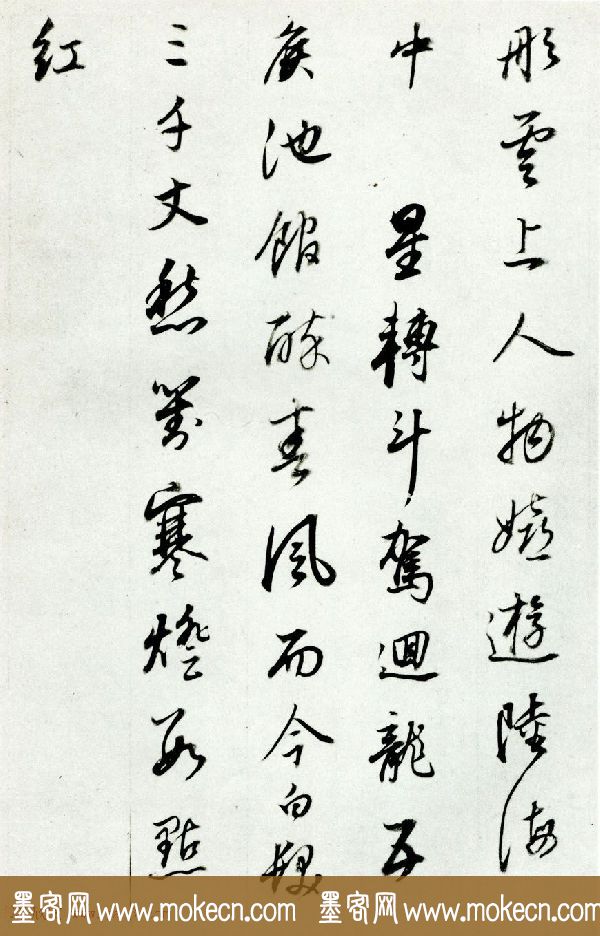 彤雲上人物嬉遊陸海
中 星轉斗駕迴龍五
侯池館醉春風而今白髮
三千丈愁對寒燈數點
紅
墨客网 www.mokecn.com 墨客网 www.mokecn.com